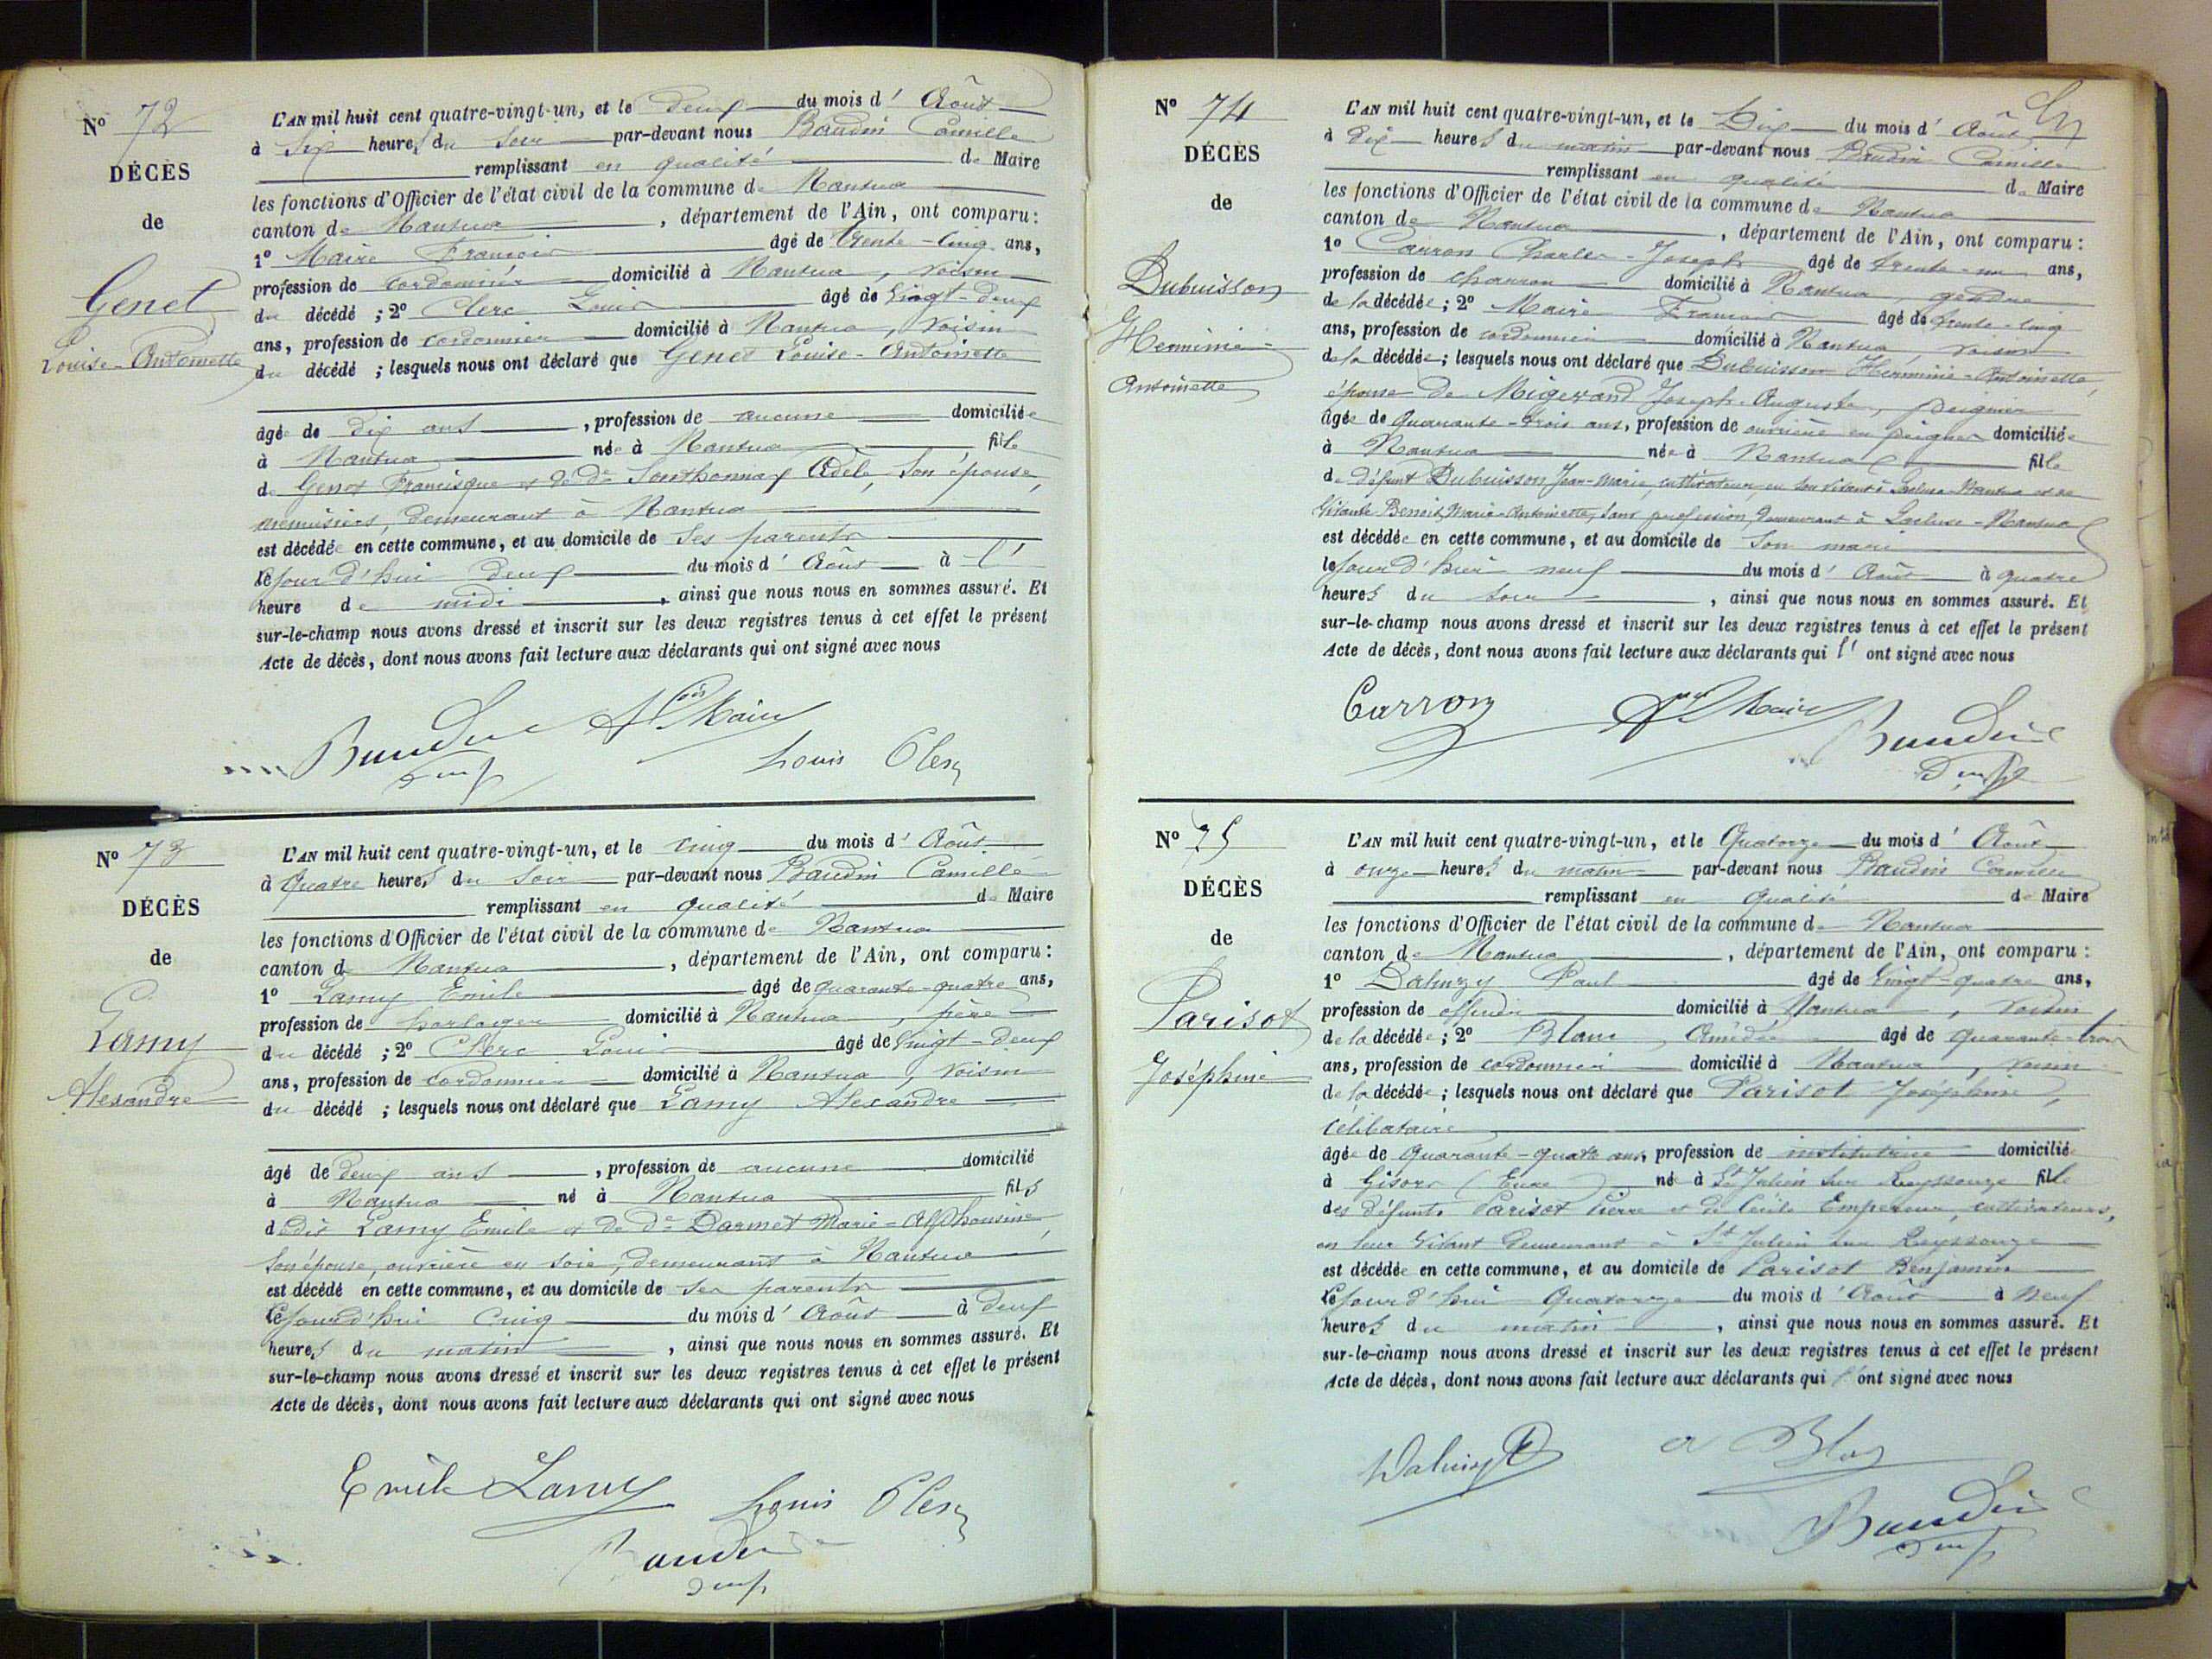 N° 72
DÉCÈS
de
Genet
Louise-Antoinette
L'AN mil huit cent quatre-vingt-un, et le deux du mois d' Août
à Six heures du Soir par-devant nous Baudin Camille
remplissant en qualité de Maire
les fonctions d'Officier de l'état civil de la commune de Nantua
canton de Nantua, département de l'Ain, ont comparu:
1° Maire François âgé de trente-cinq ans,
profession de Cordonnier domicilié à Nantua, voisin
du décédé; 2° Clerc Louis âgé de vingt-deux
ans, profession de cordonnier domicilié à Nantua, voisin
du décédé; lesquels nous ont déclaré que Genet Louise-Antoinette
âgée de dix ans, profession de aucune domiciliée
à Nantua née à Nantua fille
de Genet Francisque et de de Sonthonnax Adèle, son épouse,
menuisiers, demeurant à Nantua
est décédée en cette commune, et au domicile de Ses parents
lejourd'hui deux du mois d' Août à l'
heure de midi, ainsi que nous nous en sommes assuré. Et
sur-le-champ nous avons dressé et inscrit sur les deux registres tenus à cet effet le présent
Acte de décès, dont nous avons fait lecture aux déclarants qui ont signé avec nous
Baudin Fçois Maire
Louis Clerc
N° 73
DÉCÈS
de
Lamy
Alexandre
L'AN mil huit cent quatre-vingt-un, et le cinq du mois d' Août
à Quatre heures du Soir par-devant nous Baudin Camille
remplissant en qualité de Maire
les fonctions d'Officier de l'état civil de la commune de Nantua
canton de Nantua, département de l'Ain, ont comparu:
1° Lamy Emile âgé de quarante-quatre ans,
profession de horloger domicilié à Nantua, père
du décédé; 2° Clerc Louis âgé de vingt-deux
ans, profession de cordonnier domicilié à Nantua, voisin
du décédé; lesquels nous ont déclaré que Lamy Alexandre
âgé de deux ans, profession de aucune domicilié
à Nantua né à Nantua fils
dudit Lamy Emile et de de Darmet Marie-Alphonsine,
son épouse, ouvrière en soie, demeurant à Nantua
est décédé en cette commune, et au domicile de ses parents
lejourd'hui cinq du mois d' Août à deux
heures du matin, ainsi que nous nous en sommes assuré. Et
sur-le-champ nous avons dressé et inscrit sur les deux registres tenus à cet effet le présent
Acte de décès, dont nous avons fait lecture aux déclarants qui ont signé avec nous
Emile Lamy Louis Clerc
Baudin
N° 74
DÉCÈS
de
Dubuisson
Herminie-
Antoinette
L'AN mil huit cent quatre-vingt-un, et le Dix du mois d' Août
à dix heures du matin par-devant nous Baudin Camille
remplissant en qualité de Maire
les fonctions d'Officier de l'état civil de la commune de Nantua
canton de Nantua, département de l'Ain, ont comparu:
1° Carron Charles-Joseph âgé de trente-un ans,
profession de charron domicilié à Nantua, gendre
de la décédée; 2° Maire François âgé de trente-cinq
ans, profession de cordonnier domicilié à Nantua, voisin
de la décédée; lesquels nous ont déclaré que Dubuisson Herminie-Antoinette,
épouse de Migerand Joseph-Auguste, peignier
âgée de Quarante-trois ans, profession de ouvrière en peignes domiciliée
à Nantua née à Nantua fille
de défunt Dubuisson Jean-Marie, cultivateur, en son vivant à Lacluse-Nantua et de
vivante Benoit Marie-Antoinette, sans profession, demeurant à Lacluse-Nantua
est décédée en cette commune, et au domicile de son mari
lejour d'hier neuf du mois d' Août à quatre
heures du soir, ainsi que nous nous en sommes assuré. Et
sur-le-champ nous avons dressé et inscrit sur les deux registres tenus à cet effet le présent
Acte de décès, dont nous avons fait lecture aux déclarants qui l' ont signé avec nous
Carron Fçois Maire Baudin
N° 75
DÉCÈS
de
Parisot
Joséphine
L'AN mil huit cent quatre-vingt-un, et le Quatorze du mois d' Août
à onze heures du matin par-devant nous Baudin Camille
remplissant en qualité de Maire
les fonctions d'Officier de l'état civil de la commune de Nantua
canton de Nantua, département de l'Ain, ont comparu:
1° Dalmzy Paul âgé de Vingt-quatre ans,
profession de domicilié à Nantua, voisin
de la décédée; 2° Blanc Amédée âgé de quarante-trois
ans, profession de cordonnier domicilié à Nantua, voisin
de la décédée; lesquels nous ont déclaré que Parisot Joséphine,
célibataire
âgée de Quarante-quatre ans, profession de institutrice domiciliée
à Gisors (Eure) née à St Julien sur Reyssouze fille
des défunts Parisot Pierre et de Cécile Empereur, cultivateurs,
en leur vivant demeurant à St Julien sur Reyssouze
est décédée en cette commune, et au domicile de Parisot Benjamin
lejourd'hui Quatorze du mois d' Août à neuf
heures du matin, ainsi que nous nous en sommes assuré. Et
sur-le-champ nous avons dressé et inscrit sur les deux registres tenus à cet effet le présent
Acte de décès, dont nous avons fait lecture aux déclarants qui l' ont signé avec nous
Baudin